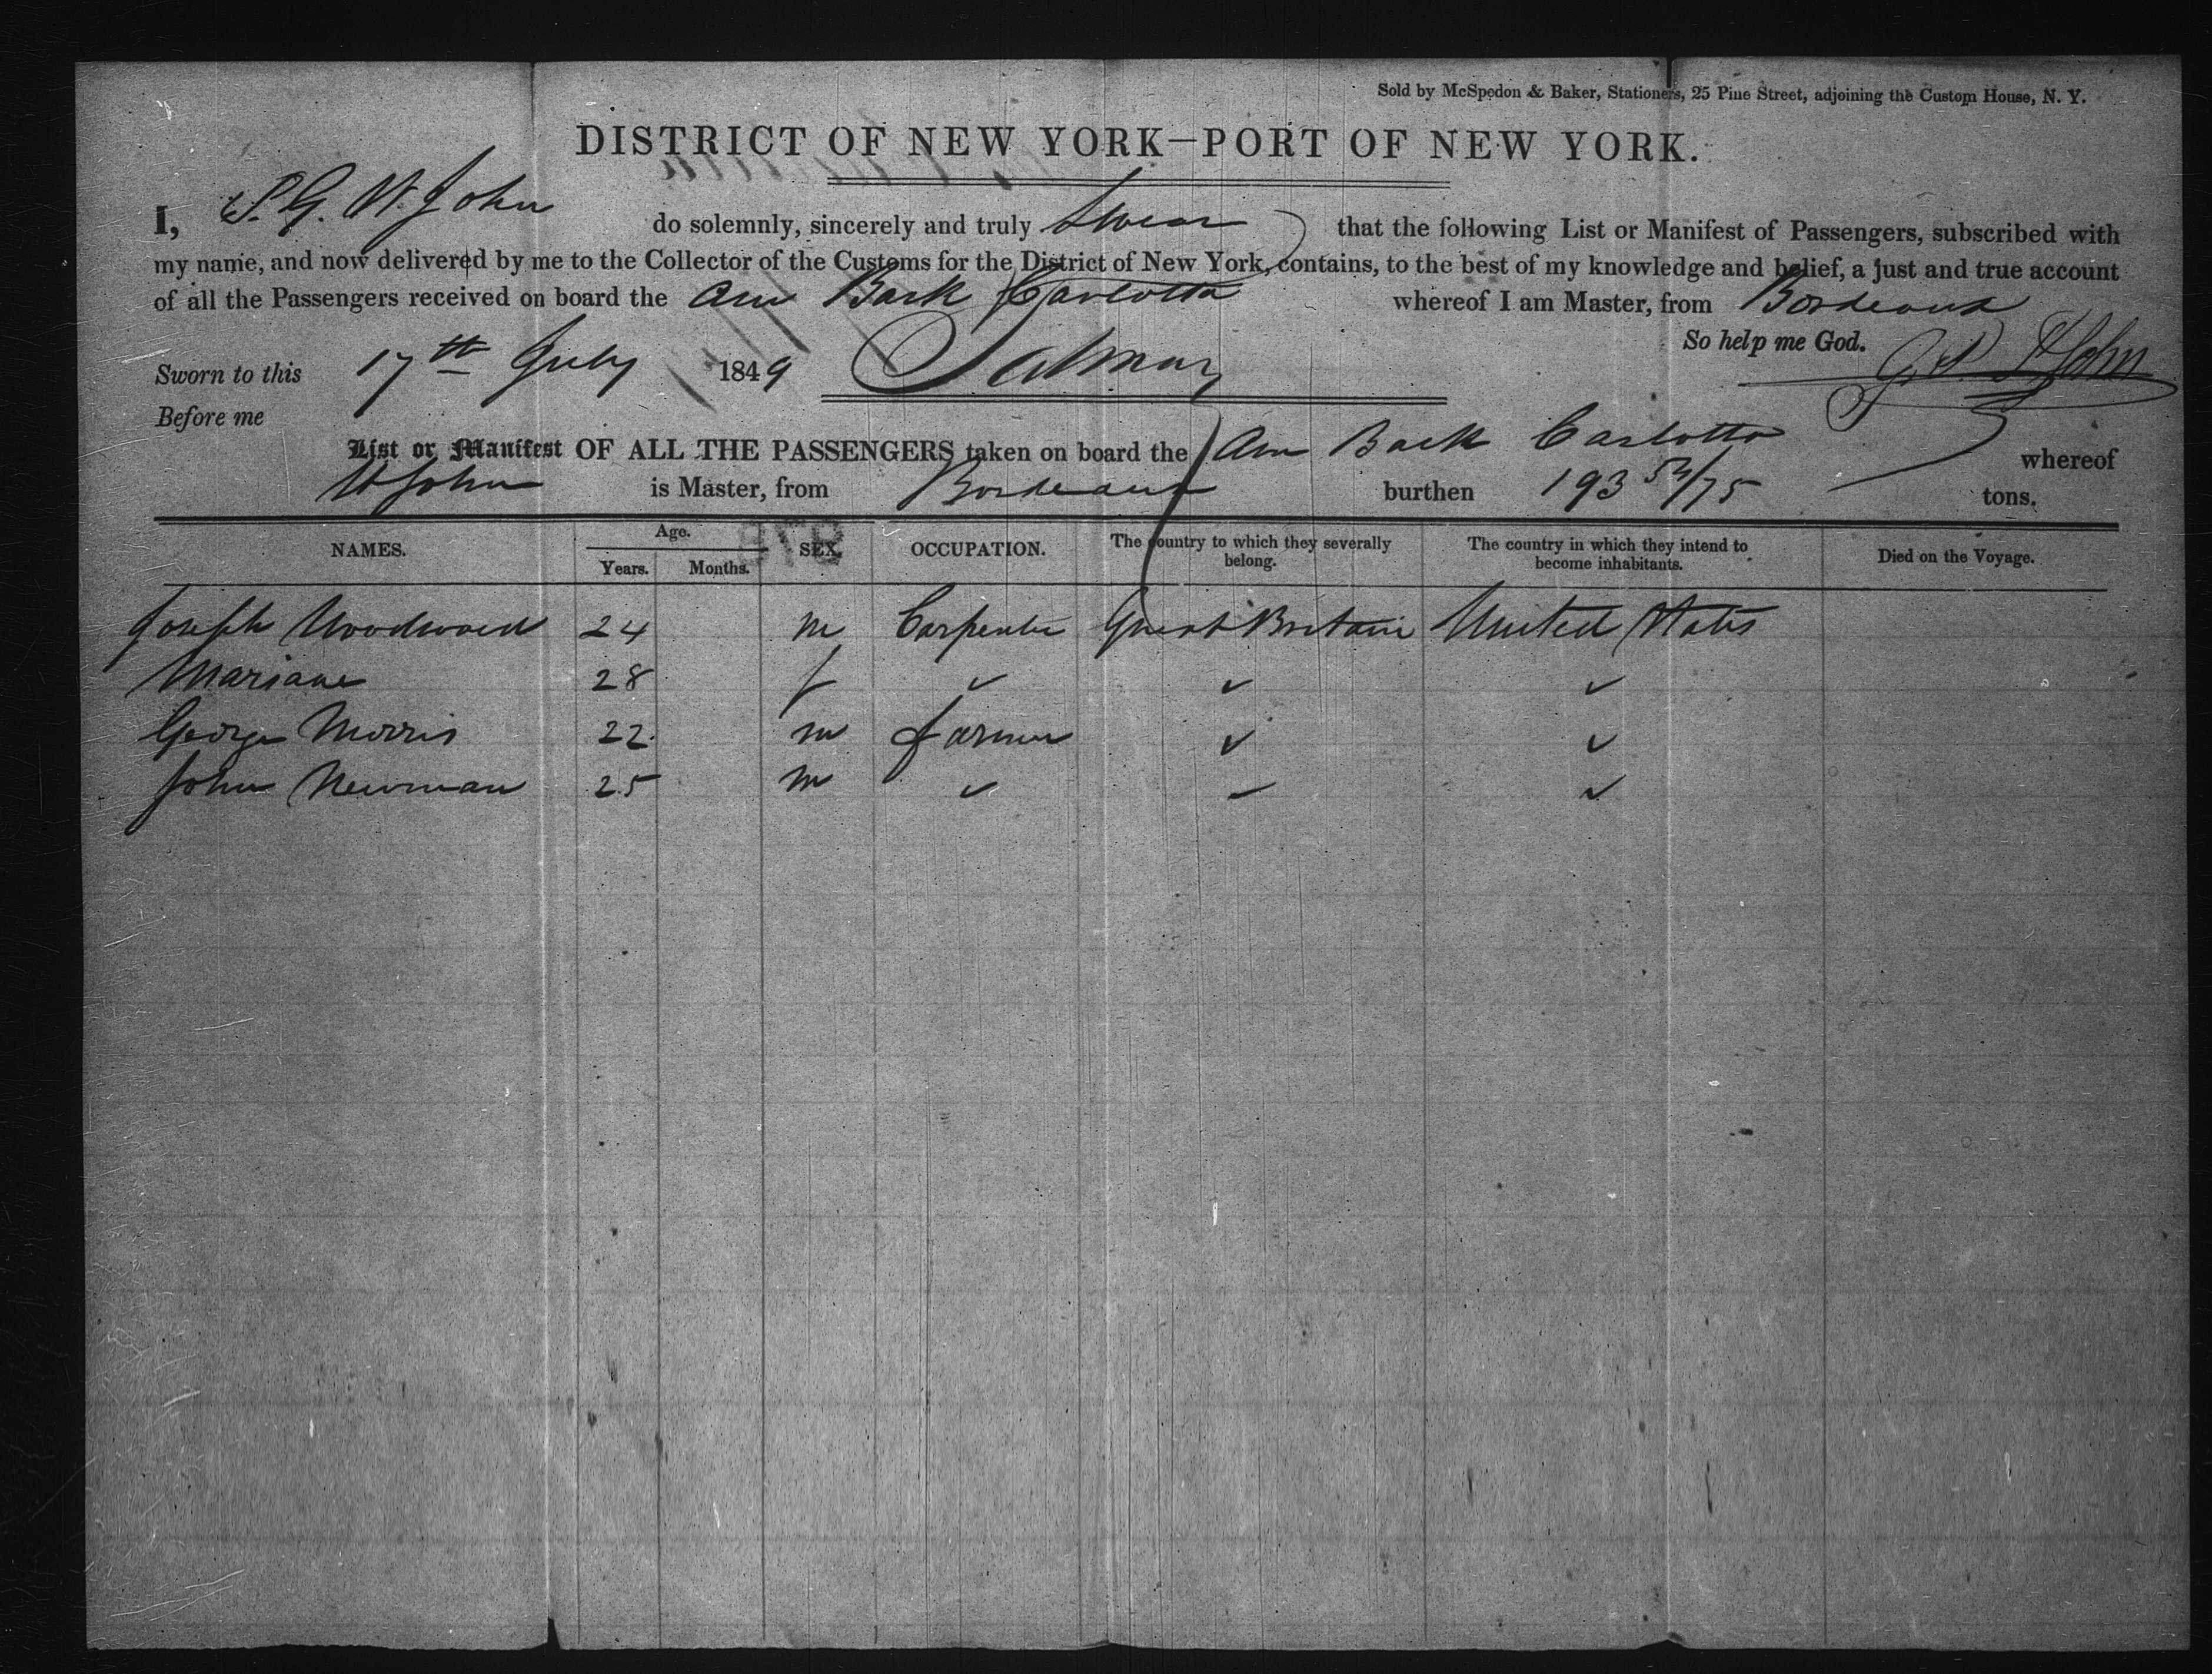 Sold by McSpedon & Baker, Stationers, 25 Pine Street, adjoining the Custom House, N. Y.
DISTRICT OF NEW YORK—PORT OF NEW YORK.
I, S. G. St John do solemnly, sincerely and truly swear that the following List or Manifest of Passengers, subscribed with
my name, and now delivered by me to the Collector of the Customs for the District of New York, contains, to the best of my knowledge and belief, a just and true account
of all the Passengers received on board the Am Bark Carlotta whereof I am Master, from Bordeaux
So help me God. St John
Sworn to this 17th July 1849
Before me
List or Manifest OF ALL THE PASSENGERS taken on board the Am Bark Carlotta whereof
St John is Master, from Bordeaux burthen 193 54/75 tons.
NAMES. Age. SEX. OCCUPATION. The country to which they severally belong. The country in which they intend to become inhabitants. Died on the Voyage.
Years. Months.
Joseph Woodward 24 m Carpenter Great Britain United States
Mariane 28 f ✓ ✓ ✓
George Morris 22 m farmer ✓ ✓
John Newman 25 m ✓ ✓ ✓